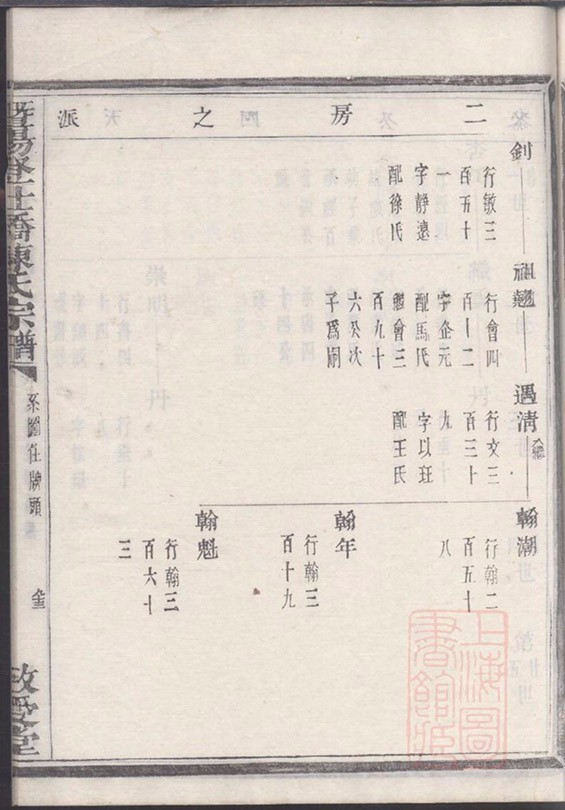 二房之派
釗
行敏三
百五十
一
字靜遠
配徐氏
祖魁
行會四
百十二
字企元
配馬氏
繼會三
百九十
六癸次
子爲嗣
遇清
繼
行文三
百三十
九
字以玨
配王氏
翰潮
行翰二
百五十
八
翰年
行翰三
百十九
翰魁
行翰三
百六十
三
暨陽
橋陳氏宗譜
系圖住牌頭
敬愛堂
上海圖
書館藏